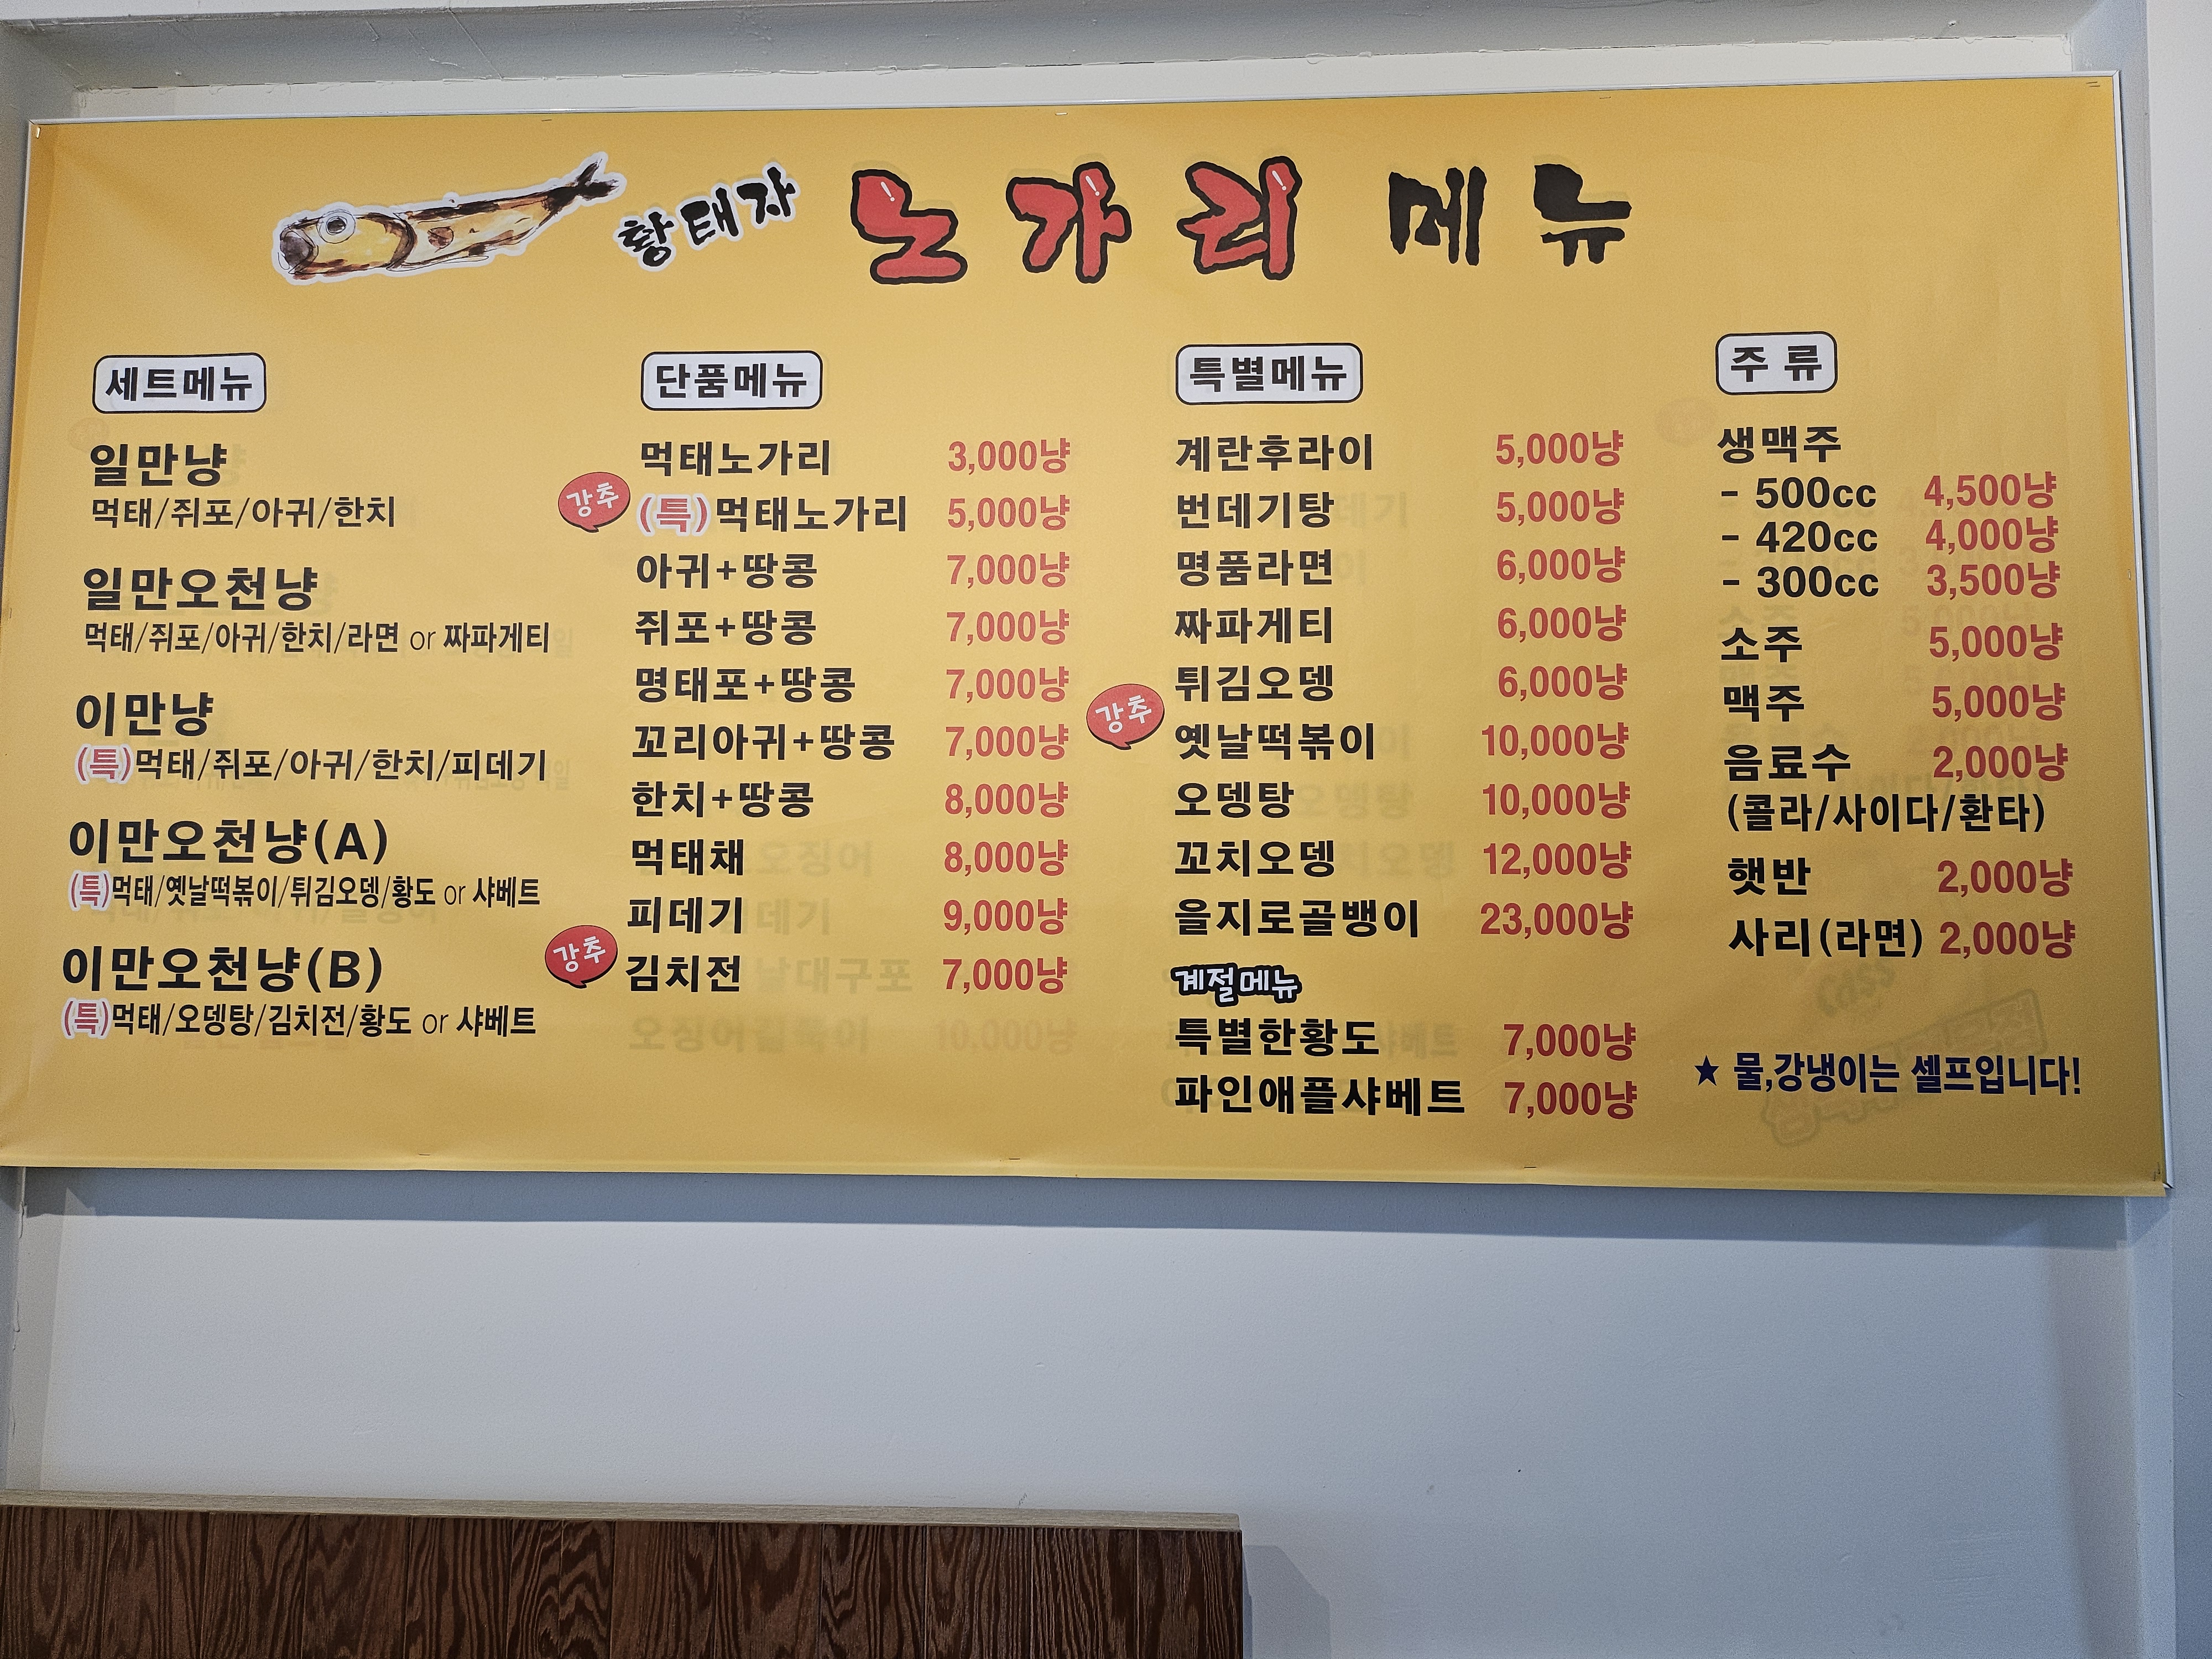 황태자 노가리 메뉴
세트메뉴
일만냥
먹태/쥐포/아귀/한치
일만오천냥
먹태/쥐포/아귀/한치/라면 or 짜파게티
이만냥
(특)먹태/쥐포/아귀/한치/피데기
이만오천냥(A)
(특)먹태/옛날떡볶이/튀김오뎅/황도 or 샤베트
이만오천냥(B)
(특)먹태/오뎅탕/김치전/황도 or 샤베트
단품메뉴
먹태노가리 3,000냥
강추 (특)먹태노가리 5,000냥
아귀+땅콩 7,000냥
쥐포+땅콩 7,000냥
명태포+땅콩 7,000냥
꼬리아귀+땅콩 7,000냥
한치+땅콩 8,000냥
먹태채 8,000냥
피데기 9,000냥
강추 김치전 7,000냥
특별메뉴
계란후라이 5,000냥
번데기탕 5,000냥
명품라면 6,000냥
짜파게티 6,000냥
튀김오뎅 6,000냥
강추 옛날떡볶이 10,000냥
오뎅탕 10,000냥
꼬치오뎅 12,000냥
을지로골뱅이 23,000냥
계절메뉴
특별한황도 7,000냥
파인애플샤베트 7,000냥
주 류
생맥주
- 500cc 4,500냥
- 420cc 4,000냥
- 300cc 3,500냥
소주 5,000냥
맥주 5,000냥
음료수 2,000냥
(콜라/사이다/환타)
햇반 2,000냥
사리(라면) 2,000냥
★ 물,강냉이는 셀프입니다!